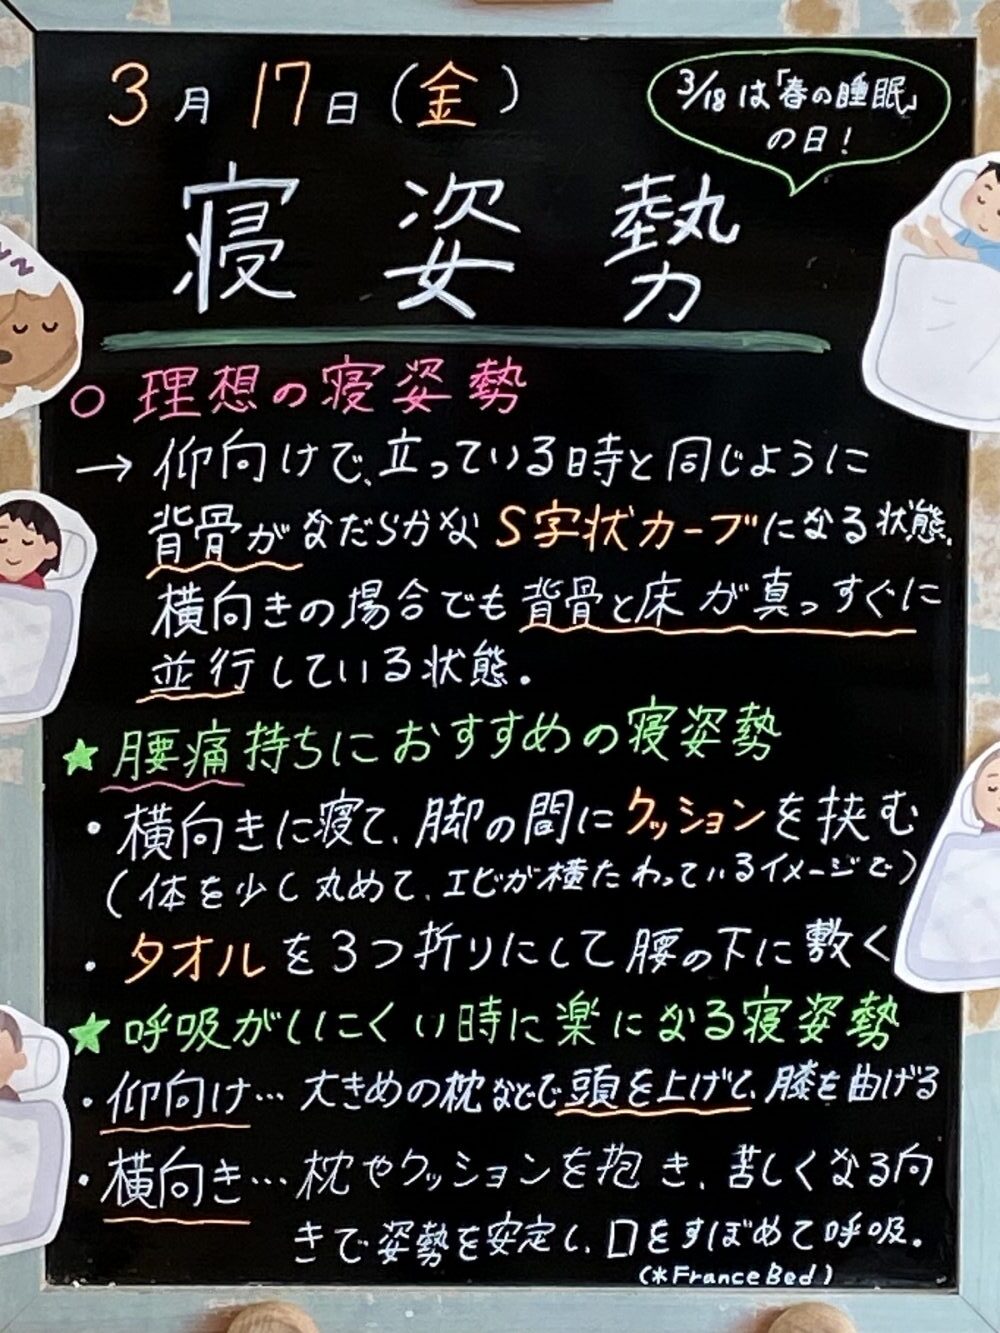 3月17日(金)
3/18は「春の睡眠」
の日!
寝姿勢
zz
○理想の寝姿勢
→仰向けで、立っている時と同じように
背骨がなだらかなS字状カーブになる状態。
横向きの場合でも背骨と床が真っすぐに
並行している状態。
★腰痛持ちにおすすめの寝姿勢
・横向きに寝て、脚の間にクッションを挟む
(体を少し丸めて、エビが横たわっているイメージで)
・タオルを3つ折りにして腰の下に敷く
★呼吸がしにくい時に楽になる寝姿勢
・仰向け…大きめの枕などで頭を上げて、膝を曲げる
・横向き…枕やクッションを抱き、苦しくなる向
きで姿勢を安定し、口をすぼめて呼吸。
(*France Bed)